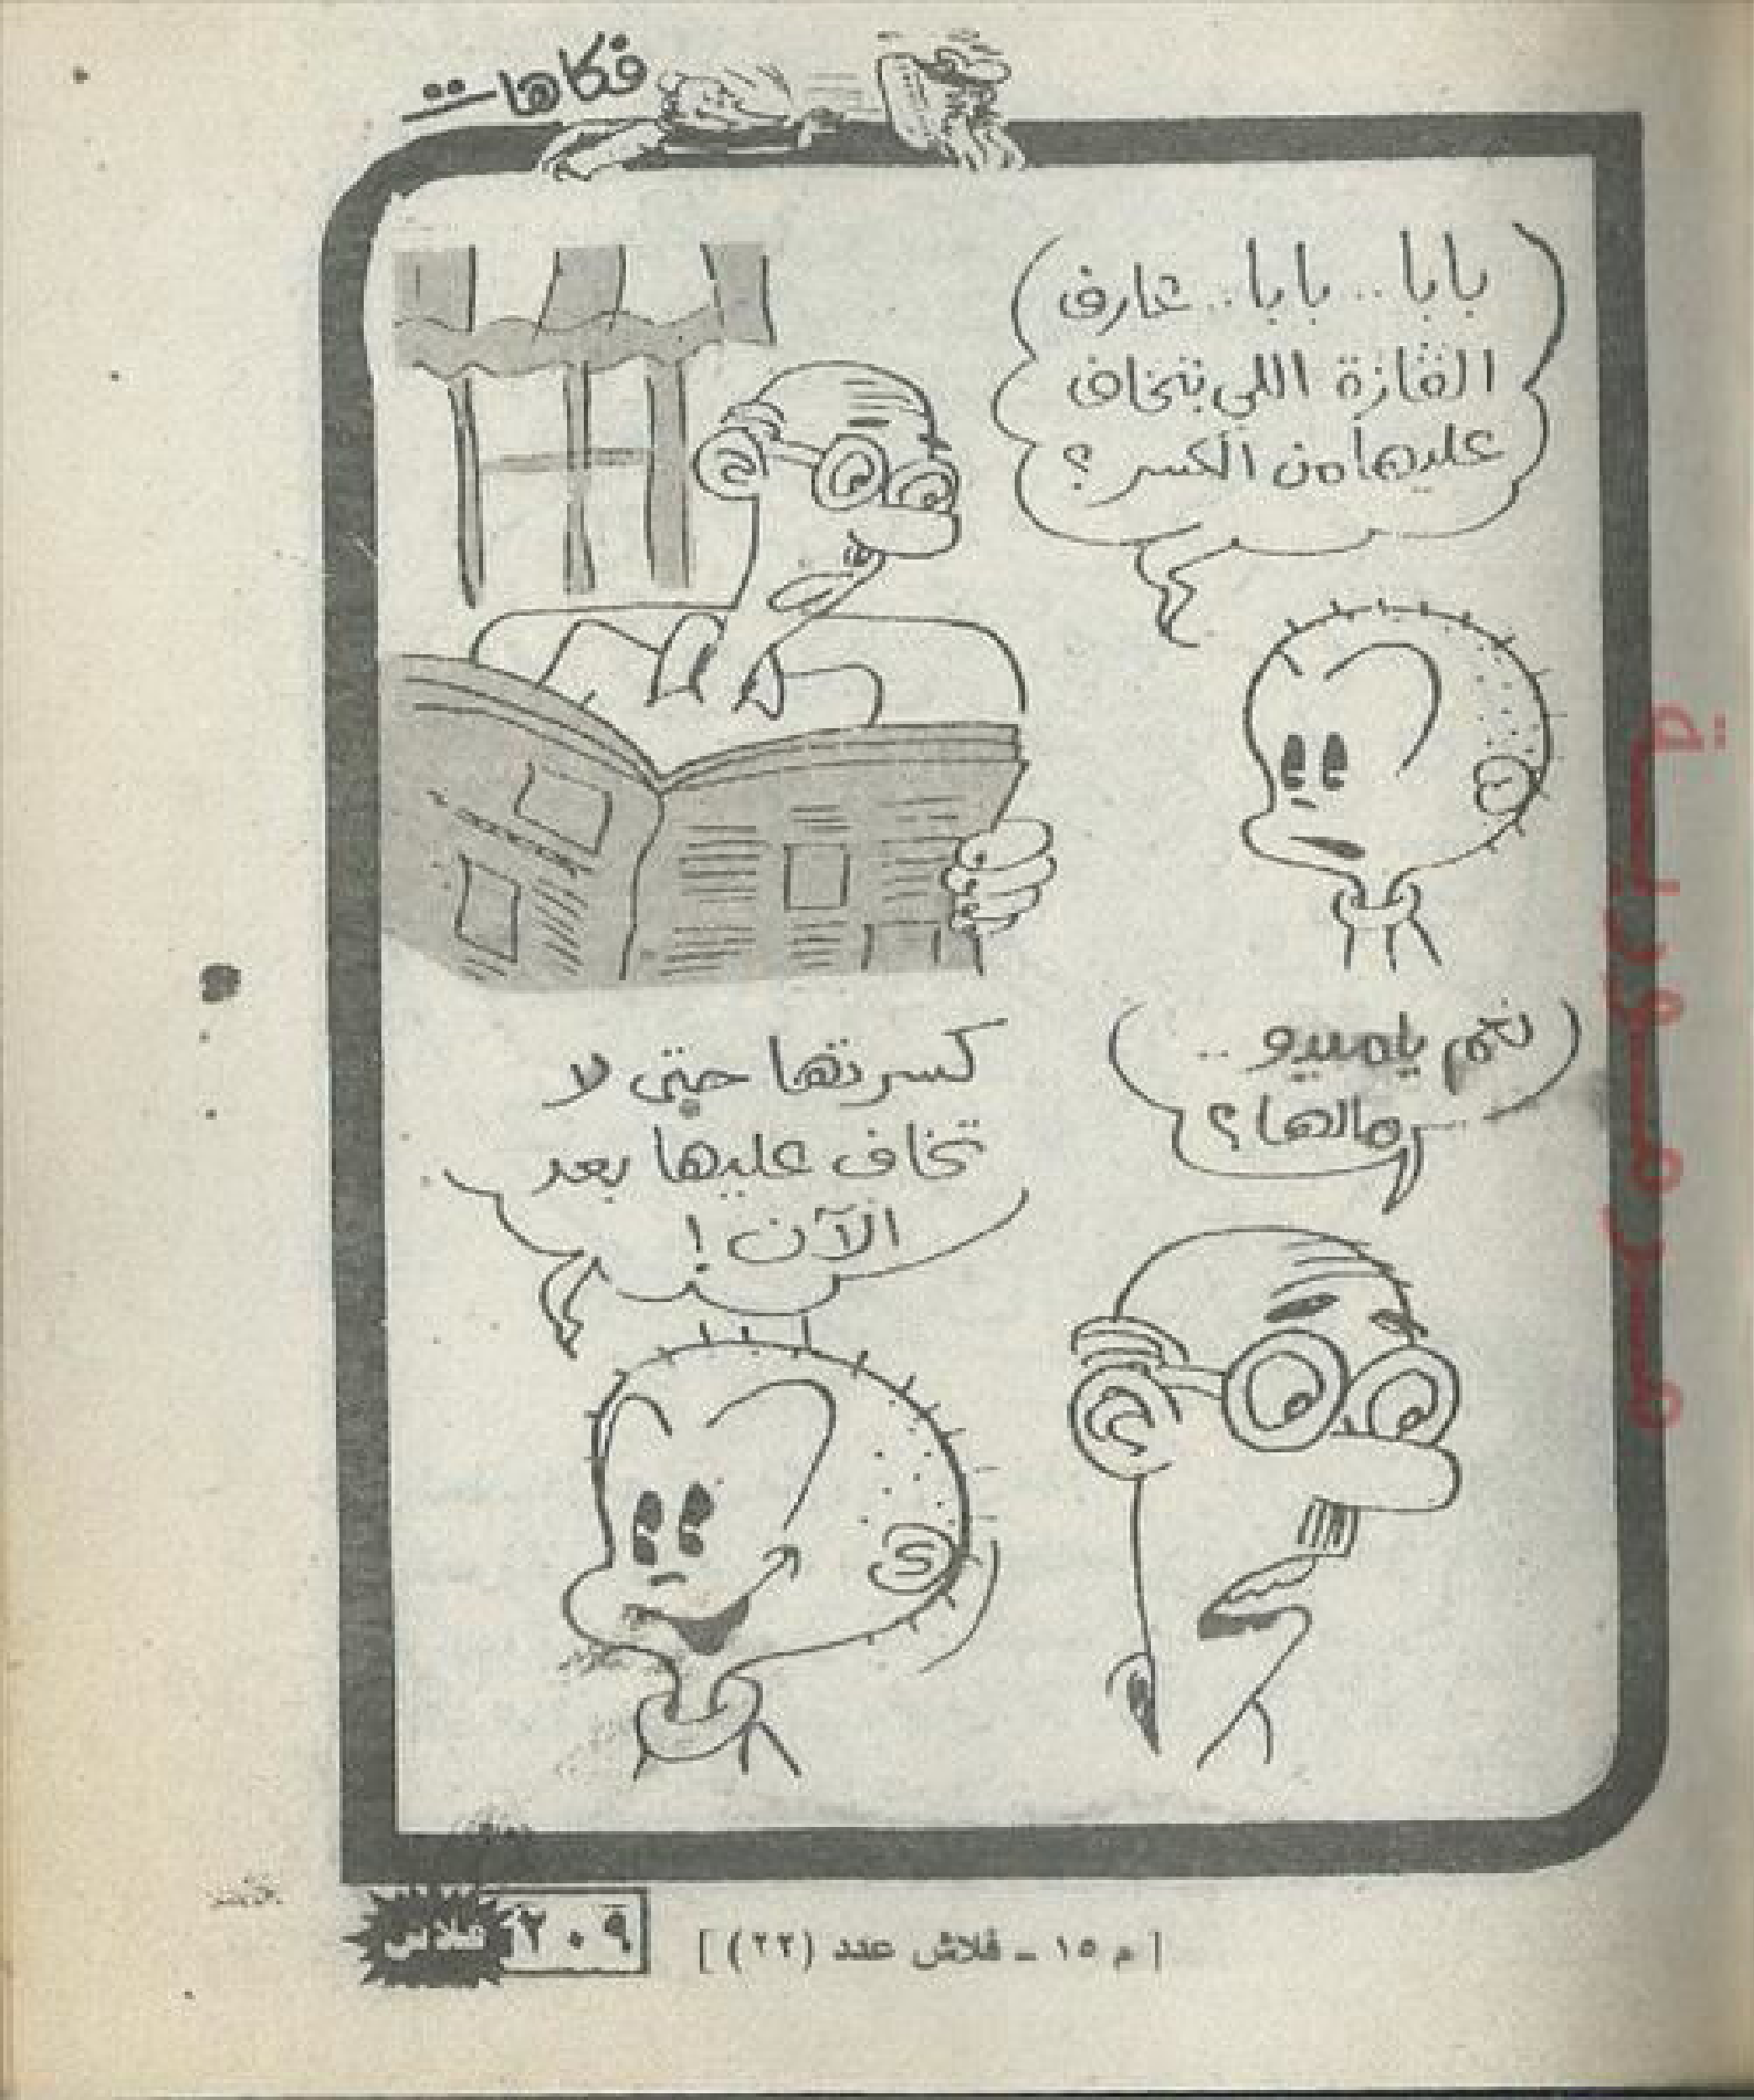 فكاهات
بابا .. بابا .. عارف
الفازة اللي بتخاف
عليها من الكسر ؟
نعم يا ميدو ..
مالها ؟
كسرتها حتى لا
تخاف عليها بعد
الآن !
[ م ١٥ ـ فلاش عدد (٢٢) ]
٢٠٩
فلاش